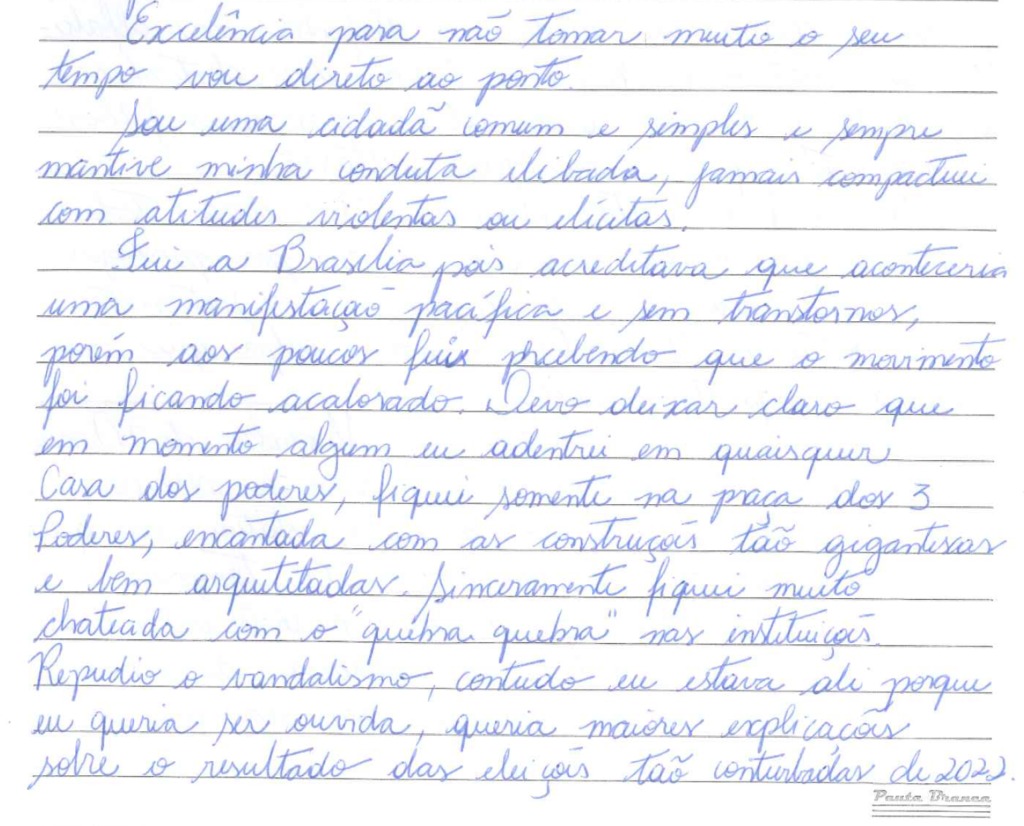 Excelência para não tomar muito o seu
tempo vou direto ao ponto.
Sou uma cidadã comum e simples e sempre
mantive minha conduta ilibada, jamais compactuei
com atitudes violentas ou elícitas.
Fui a Brasília pois acreditava que aconteceria
uma manifestação pacífica e sem transtornos,
porém aos poucos fui percebendo que o movimento
foi ficando acalorado. Devo deixar claro que
em momento algum eu adentrei em quaisquer
Casa dos poderes, fiquei somente na praça dos 3
Poderes, encantada com as construções tão gigantescas
e bem arquitetadas. Sinceramente fiquei muito
chateada com o "quebra quebra" nas instituições.
Repudio o vandalismo, contudo eu estava ali porque
eu queria ser ouvida, queria maiores explicações
sobre o resultado das eleições tão conturbadas de 2022.
Pauta Branca